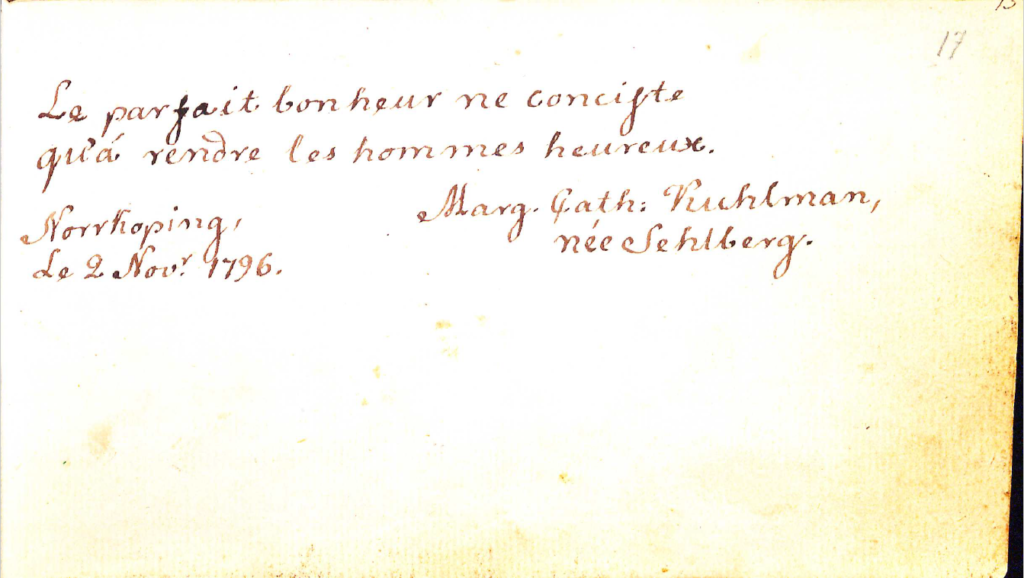 17
Le parfait bonheur ne conciste
qu'á rendre les hommes heureux.
Norrkoping,
Le 2 Nov.r 1796.
Marg. Cath: Kuhlman,
née Sehlberg.